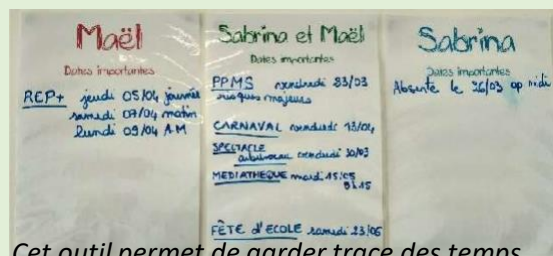 Maël
Dates importantes
REP+ jeudi 05/04 journée
samedi 07/04 matin
lundi 09/04 A.M
Sabrina et Maël
Dates importantes
PPMS vendredi 23/03
risques majeurs
CARNAVAL vendredi 13/04
SPECTACLE
vendredi 30/03
MEDIATHEQUE mardi 15/05
9h15
FÊTE d'ECOLE samedi 23/06
Sabrina
Dates importantes
Absente le 26/03 ap midi
Cet outil permet de garder trace des temps